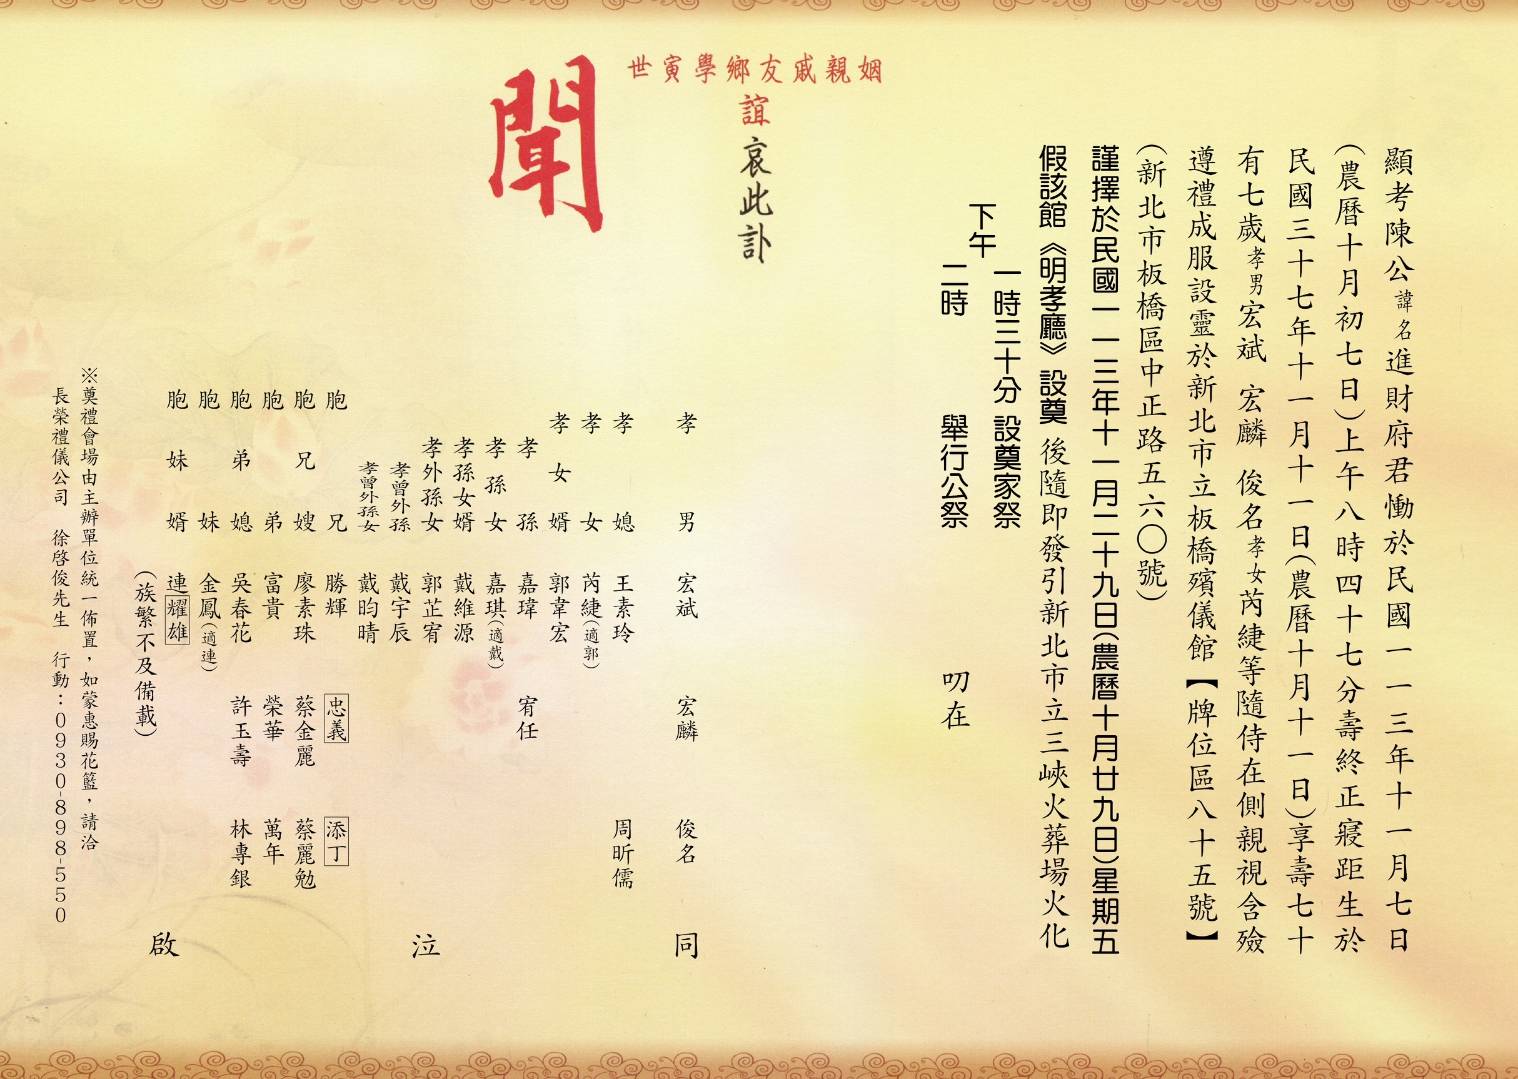 顯考陳公諱名進財府君慟於民國一一三年十一月七日
(農曆十月初七日)上午八時四十七分壽終正寢距生於
民國三十七年十一月十一日(農曆十月十一日)享壽七十
有七歲孝男宏斌 宏麟 俊名孝女芮緁等隨侍在側親視含殮
遵禮成服設靈於新北市立板橋殯儀館【牌位區八十五號】
(新北市板橋區中正路五六〇號)
謹擇於民國一一三年十一月二十九日(農曆十月廿九日)星期五
假該館《明孝廳》設奠 後隨即發引新北市立三峽火葬場火化
下午
一時三十分 設奠家祭
二時 舉行公祭
叨在
姻親戚友鄉學寅世
誼哀此訃
聞
孝男 宏斌 宏麟 俊名 同
孝媳 王素玲 周昕儒
孝女 芮緁(適郭)
孝女婿 郭韋宏
孝孫 嘉瑋 宥任
孝孫女 嘉琪(適戴)
孝孫女婿 戴維源
孝外孫女 郭芷宥 泣
孝曾外孫 戴宇辰
孝曾外孫女 戴昀晴
胞兄 勝輝 忠義 添丁
胞兄嫂 廖素珠 蔡金麗 蔡麗勉
胞弟 富貴 榮華 萬年
胞弟媳 吳春花 許玉壽 林專銀
胞妹 金鳳(適連)
胞妹婿 連耀雄
(族繁不及備載) 啟
※奠禮會場由主辦單位統一佈置，如蒙惠賜花籃，請洽
長榮禮儀公司 徐啓俊先生 行動：0930-898-550